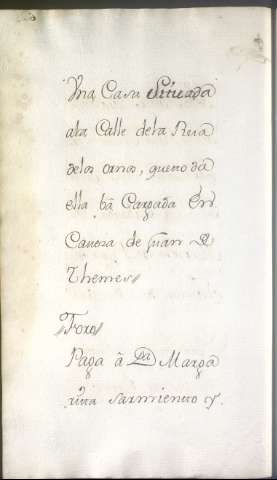 Una Casa Situada
ala Calle dela Rua
delos ornos, que toda
ella bâ Cargada En
Cavesa de Juan R
Themes//
Foros
Paga â Da Marga
rita Sarmiento y.